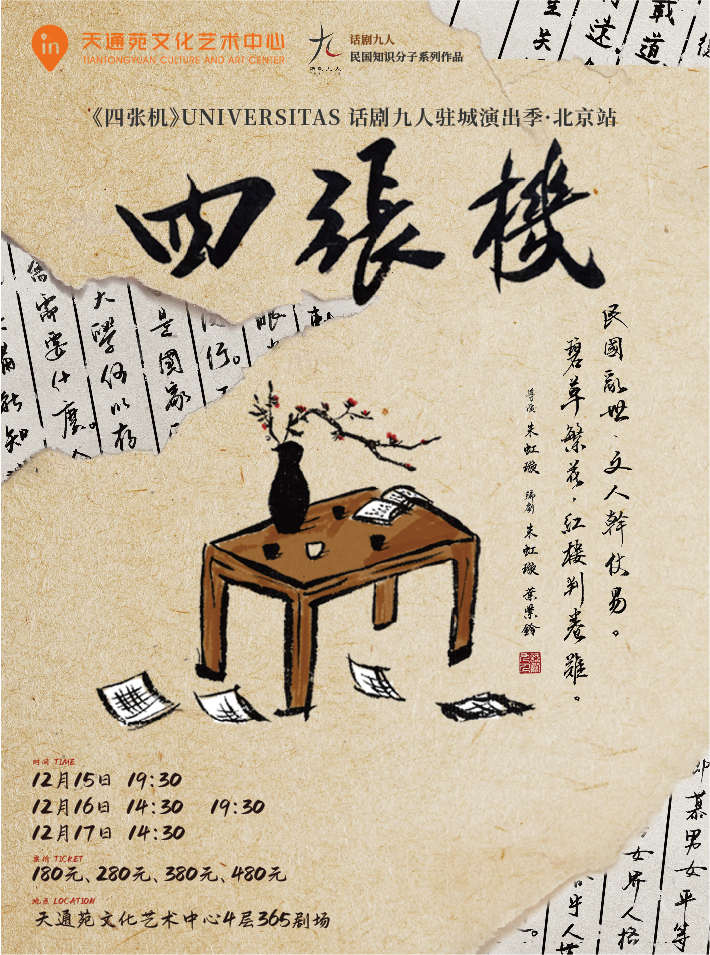 in 天通苑文化艺术中心
TIANTONGYUAN CULTURE AND ART CENTER
九
话剧九人
民国知识分子系列作品
《四张机》UNIVERSITAS 话剧九人驻城演出季·北京站
四張機
民國亂世、文人幹仗易。
碧草繁花，紅樓判卷難。
導演 朱虹璇 編劇 朱虹璇 葉紫鈴
載道
需要什麼。
大學何以
是國家
时间 TIME
12月15日 19:30
12月16日 14:30 19:30
12月17日 14:30
票价 TICKET
180元、280元、380元、480元
地点 LOCATION
天通苑文化艺术中心4层365剧场
慕男女平等
女界人格